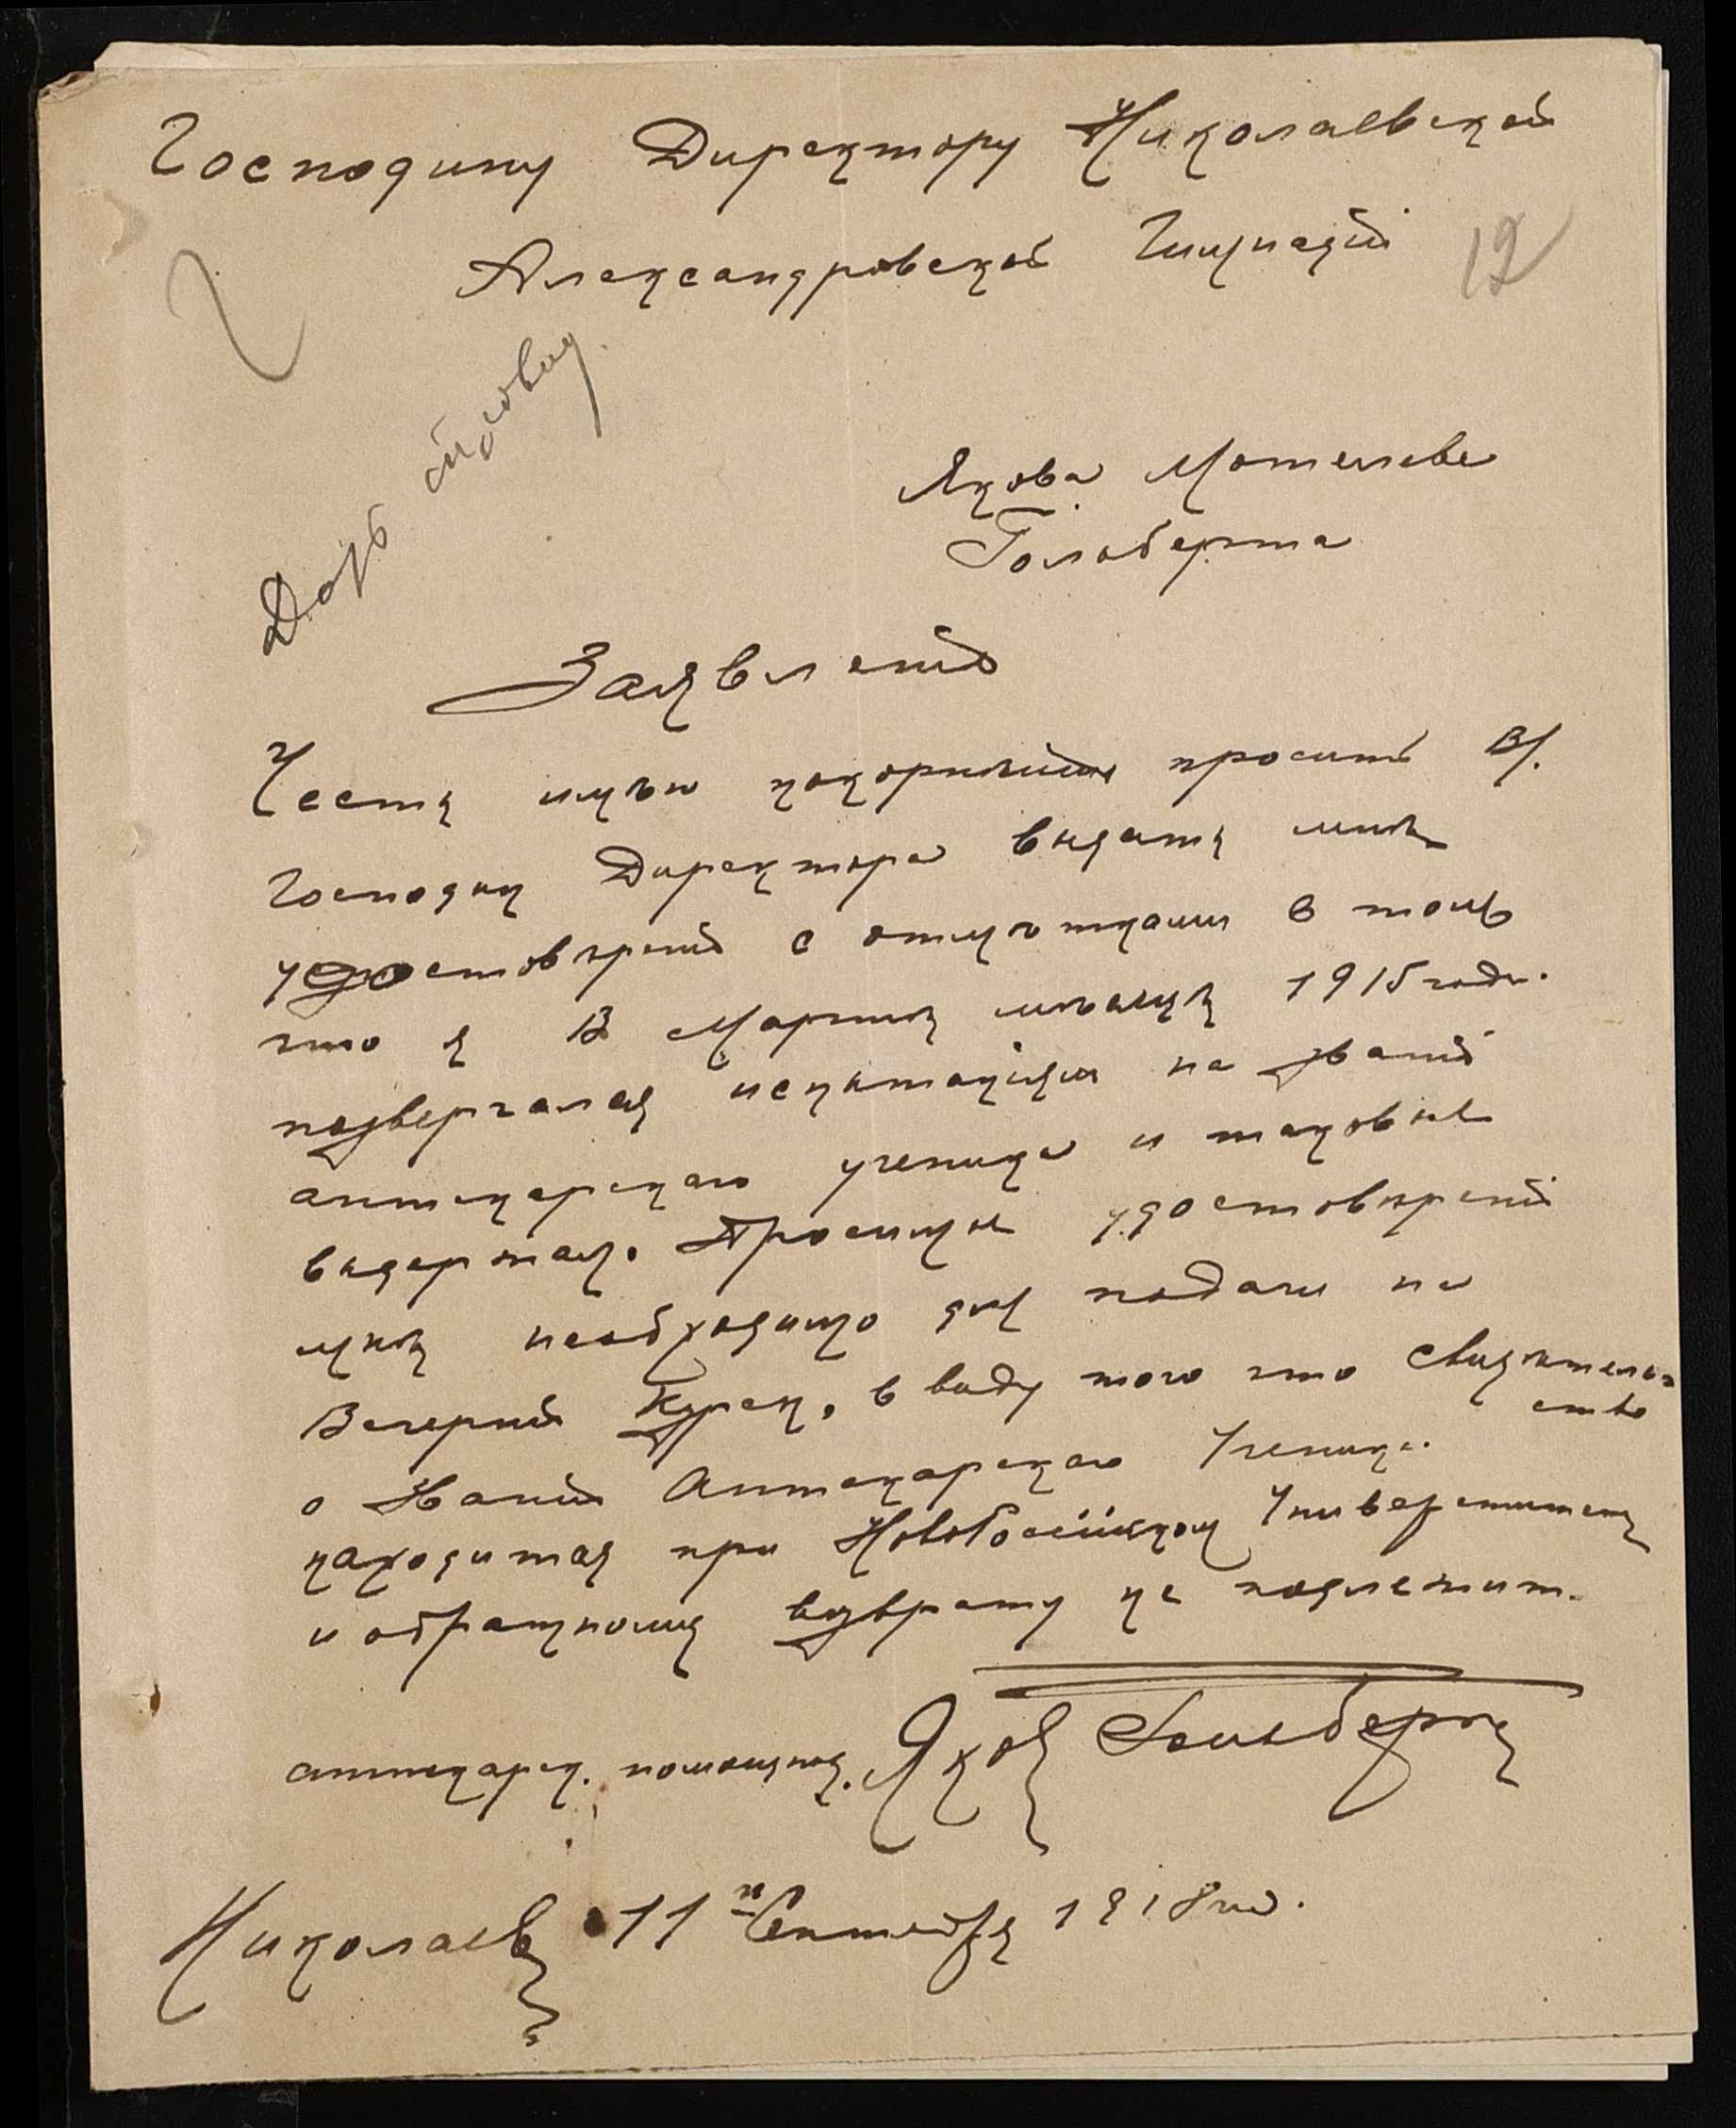 Господину Директору Николаевской
Александровской Гимназіи
12
Дать справку
Якова Мотелева
Гольберта
Заявленіе
Честь имѣю покорнѣйше просить
Господин Директора выдать мнѣ
удостовѣреніе с отмѣтками в томъ
что я В Мартѣ мѣсяцѣ 1915 года.
подвергался испытаніям на званіе
аптекарскаго ученика и таковые
выдержал. Просимое удостовѣреніе
мнѣ необходимо для подачи на
Вечерніе Курсы, в виду того что Свидѣтель=
ство
о Званіи Аптекарскаго Ученика
находится при Новоросійском Университетѣ
и обратному возврату не подлежит.
аптекарск. помощник. Яков Гольберг
Николаев 11го Сентября 1918 го.